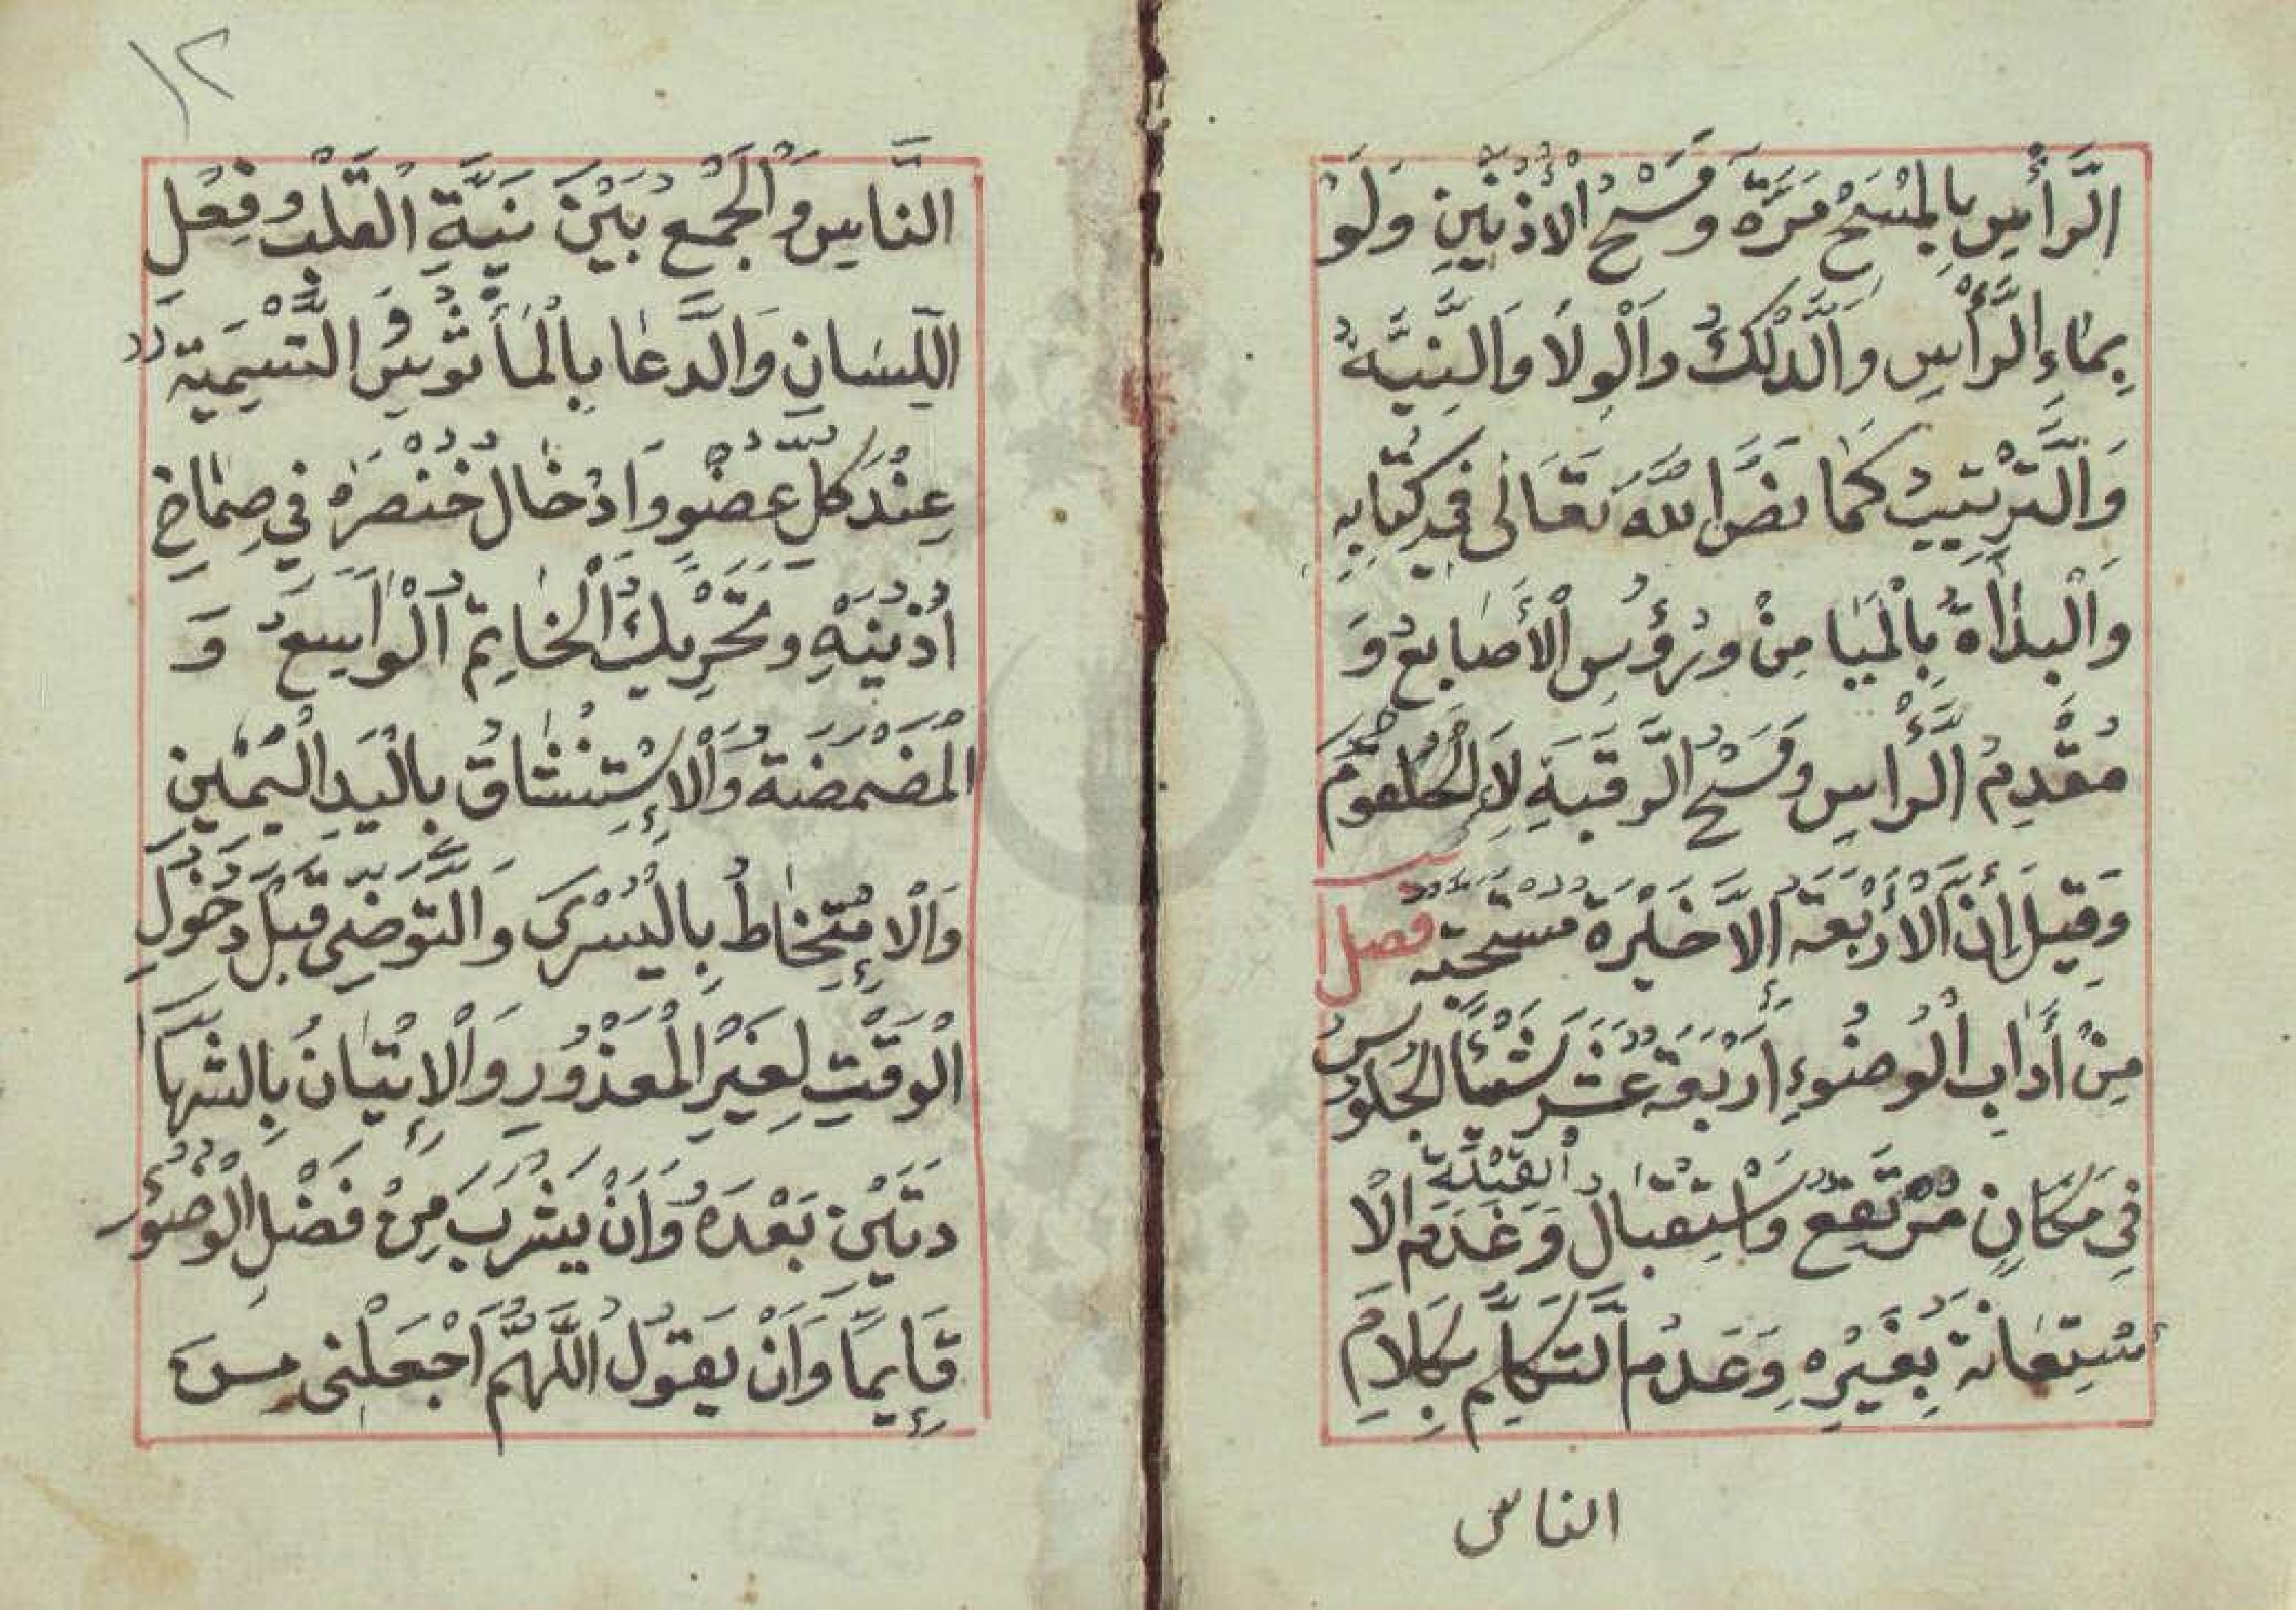 الرَّأْسِ بِالْمَسْحِ مَرَّةً وَمَسْحُ الْأُذُنَيْنِ وَلَوْ
بِمَاءِ الرَّأْسِ وَالدَّلْكُ وَالْوِلَا وَالنِّيَّةُ
وَالتَّرْتِيبُ كَمَا نَصَّ اللّٰهُ تَعَالٰى فِي كِتَابِهِ
وَالْبَدَاأَةُ بِالْمَيَا مِنْ وَرُؤُسِ الْأَصَابِعِ وَ
مُقَدَّمِ الرَّأسِ وَمَسْحُ الرَّقَبَةِ لَا الْحُلْقُومَ
وَقِيلَ أَنَّ الْأَرْبَعَةَ الْأَخِيْرَةَ مُسْتَحَبَّة فصل
مِنْ أَدَابِ الْوُضُوءِ أَرْبَعَةَ عَشَرَ شَيْئًا الْجُلُوسُ
فِي مَكَانٍ مُرْتَفِعٍ وَاسْتِقْبَالُ الْقِبْلَةِ وَعَدَمُ الْا
سْتِعَانَةِ بِغَيْرِهِ وَعَدَمُ التَّكَلُّمِ بِكَلَامِ
الناس
١٢
النَّاسِ وَالْجَمْعُ بَيْنَ نِيَّةِ الْقَلْبِ وَفِعْلِ
اللِّسَانِ وَالدُّعَا بِالْمَأْثُورِ وَالتَّسْمِيَة
عِنْدَ كُلِّ عُضْوٍ وَادْخَالُ خُنْصَرِهِ فِي صِمَاخِ
أُذُنَيْهِ وَتَحْرِيكُ الْخَاتِمِ الْوَاسِعِ وَ
الْمَضْمَضَةُ وَالْإِسْتِنْشَاقُ بِالْيَدِ الْيُمْنٰين
وَالْإِمْتِخَاطُ بِالْيُسْرٰى وَالتَّوَضِّي قَبْلَ دُخُولِ
الْوَقْتِ لِغَيْرِ الْمَعْذُورِ وَالْإِتْيَانُ بِالشَّهَا
دَتَيْنِ بَعْدَهُ وَأَنْ يَشْرَبَ مِنْ فَضْلِ الْوُضُوْءِ
قَايِمًا وَأَنْ يَقُولَ اللّٰهُمَّ اجْعَلْنِي مِنَ